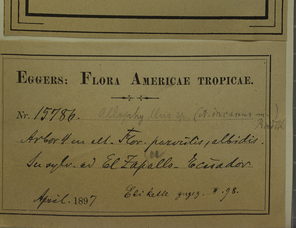 EGGERS: FLORA AMERICAE TROPICAE.
Nr. 15786. Allophyllus sp. (A. incanus Radlk
Arbor 4 m alt. Flor. parvulis, albidis.
In sylv. ad El Zapallo - Ecuador
April. 1897